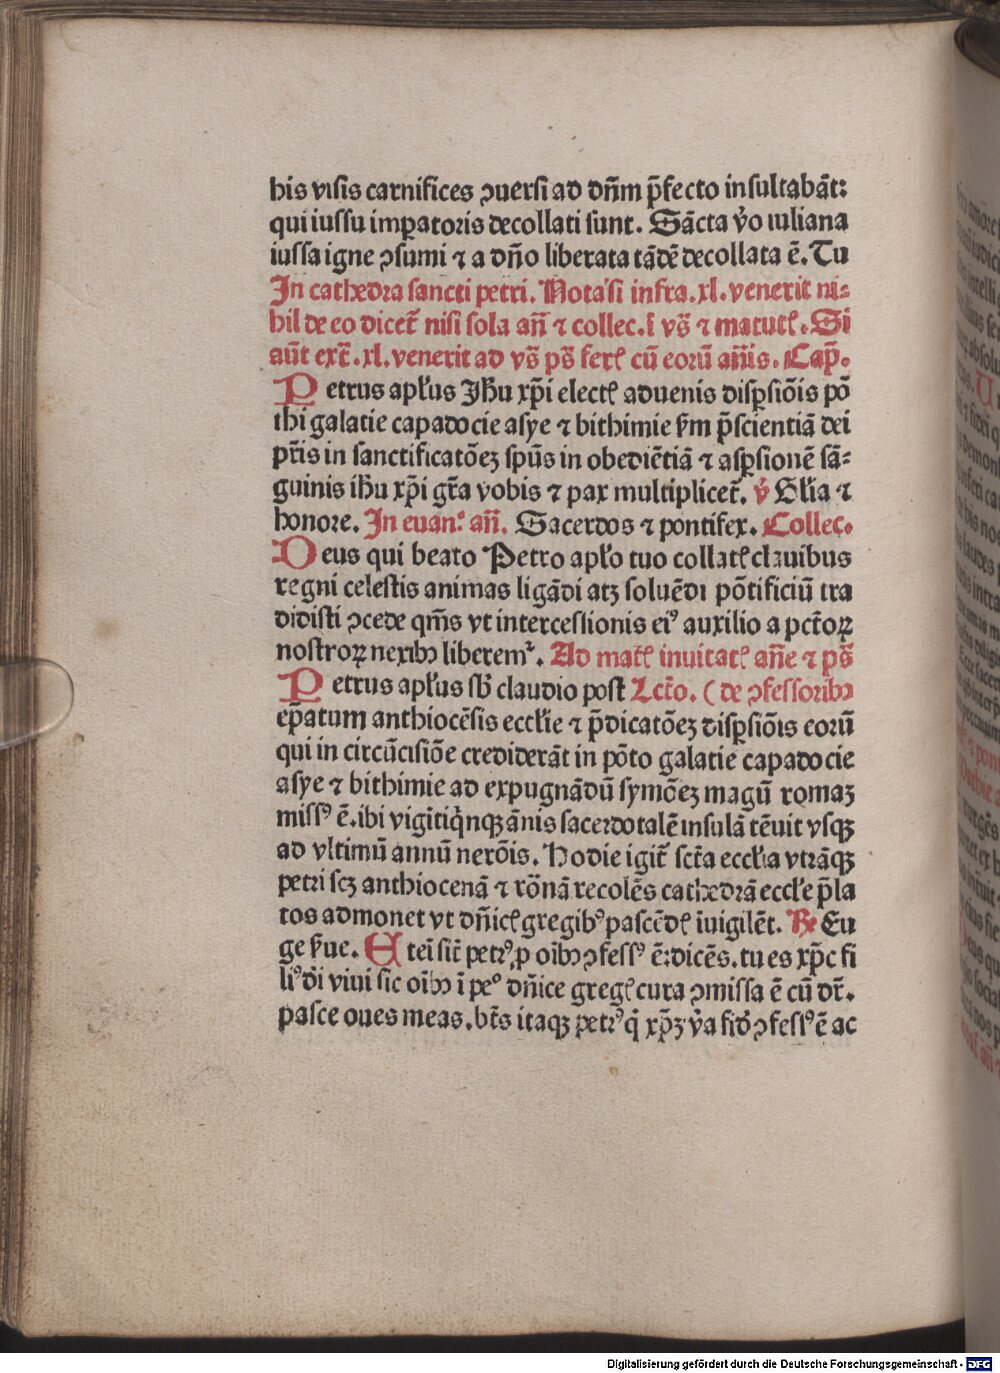 his visis carnifices ꝯuersi ad dn̄m p̄fecto insultabāt:
qui iussu imꝑatoris decollati sunt. Sācta v̉o iuliana
iussa igne ꝯsumi ⁊ a dn̄o liberata tādē decollata ē. Tu
In cathedra sancti petri. Nota si infra .xl. venerit ni⸗
hil de eo dicet̄ nisi sola an̄ ⁊ collec. ī vs̄ ⁊ matutꝭ. Si
aūt ext̄ .xl. venerit ad vs̄ ps̄ ferꝭ cū eorū an̄is. Cap̄.
Petrus apl̄us Ihū xp̄i electꝭ aduenis disꝑsiōis pō
thi galatie capadocie asye ⁊ bithimie k̄m p̄scientiā dei
pr̄is in sanctificatōeꝫ spūs in obediētiā ⁊ asꝑsionē sā⸗
guinis ihū xp̄i gr̄a vobis ⁊ pax multiplicet̄. v̉ Gl̄ia ⁊
honore. In euanꝭ an̄. Sacerdos ⁊ pontifex. Collec.
Deus qui beato Petro apl̄o tuo collatꝭ clauibus
regni celestis animas ligādi atꝫ soluēdi pōtificiū tra
didisti ꝯcede qm̄s vt intercessionis eiꝰ auxilio a pct̄oꝝ
nostroꝝ nexibꝫ liberemᷣ. Ad matꝭ inuitatꝭ an̄e ⁊ ps̄
Petrus apl̄us sb̄ claudio post Lct̄o. ( de ꝯfessoribꝫ
ep̄atum anthiocēsis eccl̄ie ⁊ p̄dicatōeꝫ disꝑsiōis eorū
qui in circūcisiōe crediderāt in pōto galatie capadocie
asye ⁊ bithimie ad expugnādū symōeꝫ magū romaꝫ
missꝰ ē. ibi vigītiq̄nqꝫ ānis sacerdotalē insulā tēuit vsqꝫ
ad vltimū annū nerōis. Hodie igit̄ sct̄a eccl̄ia vtrāqꝫ
petri scꝫ anthiocenā ⁊ rōnā recolēs cathedrā eccl̄e p̄la
tos admonet vt dn̄icꝭ gregibꝰ pascēdꝭ īuigilēt. ℟ Eu
ge k̄ue. Eteī sic̄ petrꝰ ꝓ oībꝫ ꝯfessꝰ ē: dicēs. tu es xp̄c fi
liꝰ di̇̄ viui sic oībꝫ ī peꝰ dn̄ice gregꝭ cura ꝯmissa ē cū dr̄.
pasce oues meas. bt̄s itaqꝫ petrꝰ q̇ xp̄ꝫ v̉a fid̄ ꝯfessꝰ ē ac
Digitalisierung gefördert durch die Deutsche Forschungsgemeinschaft - DFG